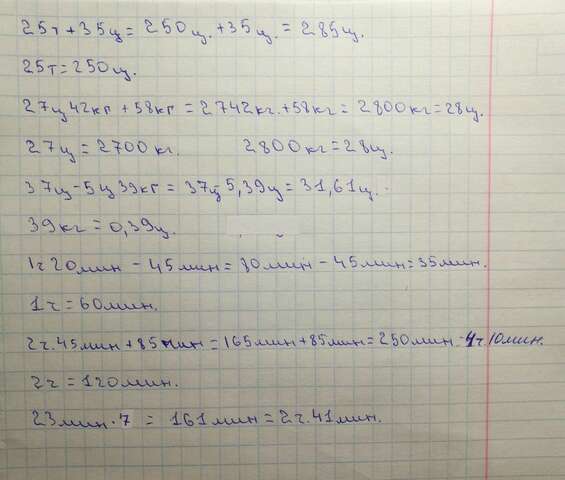 25т+35ц=250ц.+35ц.=285ц.
25т=250ц.
27ц42кг+58кг=2742кг.+58кг=2800кг=28ц.
27ц=2700кг. 2800кг=28ц.
37ц-5ц39кг=37ц-5,39ц=31,61ц.
39кг=0,39ц.
1ч20мин-45мин=80мин-45мин=35мин.
1ч=60мин.
2ч.45мин+85мин=165мин+85мин=250мин=4ч10мин.
2ч=120мин.
23мин·7=161мин=2ч.41мин.